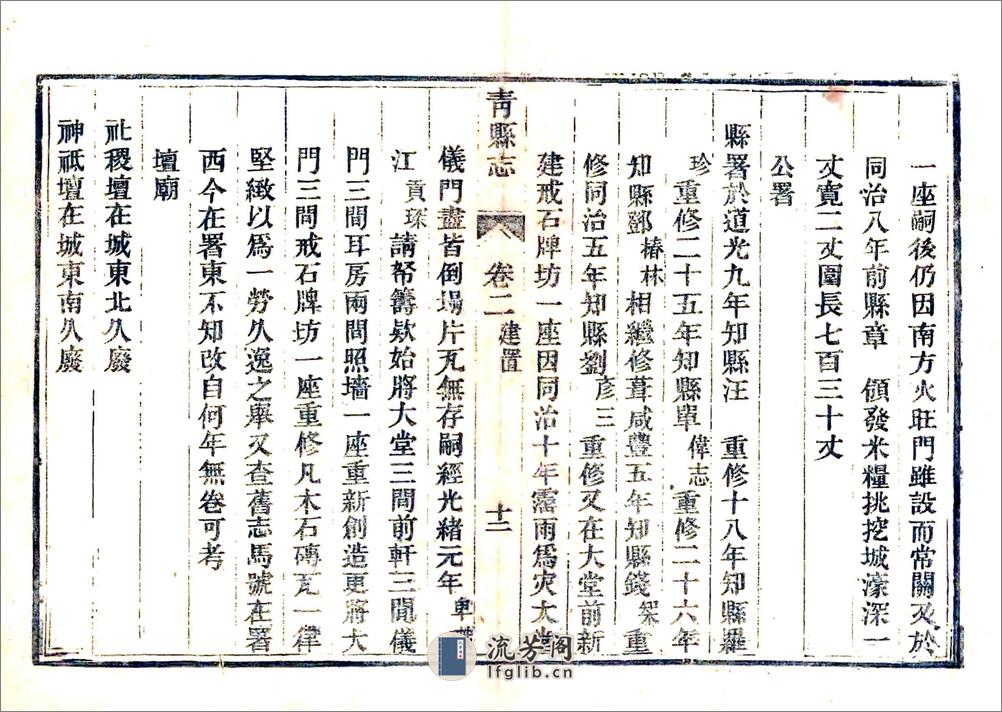 一座嗣後仍因南方火旺門雖設而常關又於
同治八年前縣章 頒發米糧挑挖城濠深一
丈寬二丈圍長七百三十丈
公署
縣署於道光九年知縣汪 重修十八年知縣羅
珍重修二十五年知縣單偉志重修二十六年
知縣鄧椿林相繼修葺咸豐五年知縣錢 重
修同治五年知縣劉彥三重修又在大堂前新
建戒石牌坊一座因同治十年霪雨為灾大堂
青縣志 卷二 建置 十二
儀門盡皆倒塌片瓦無存嗣經光緒元年
江貢琛請帑籌欵始將大堂三間前軒三間儀
門三間耳房兩間照墻一座重新創造更將大
門三間戒石牌坊一座重修凡木石磚瓦一律
堅緻以爲一勞久逸之舉又查舊志馬號在署
西今在署東不知改自何年無卷可考
壇廟
社稷壇在城東北久廢
神祇壇在城東南久廢
流芳阁
lfglib.cn